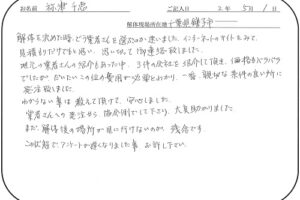 お名前 弥津千恵 ご記入日 2年5月1日
解体現場所在地 千葉県銚子市
解体を決めた時、どう業者さんを選ぶのか迷いました。インターネットのサイトをみて、
見積もりだけでもと思い、思い切ってご連絡致しました。
地元の業者さんの紹介もあった中、3件の会社を紹介して頂き、価格もバラバラ
でしたが、だいたいこの位の費用が必要とわかり、一番、親切な条件の良い所に
発注致しました。
わからない事は、教えて頂けて、安心しました。
業者さんへの発注から、協会側でして下さり、大変助かりました。
まだ、解体後の場所が見に行けないのが、残念です。
この状態で、アンケートが遅くなりました事、お許し下さい。